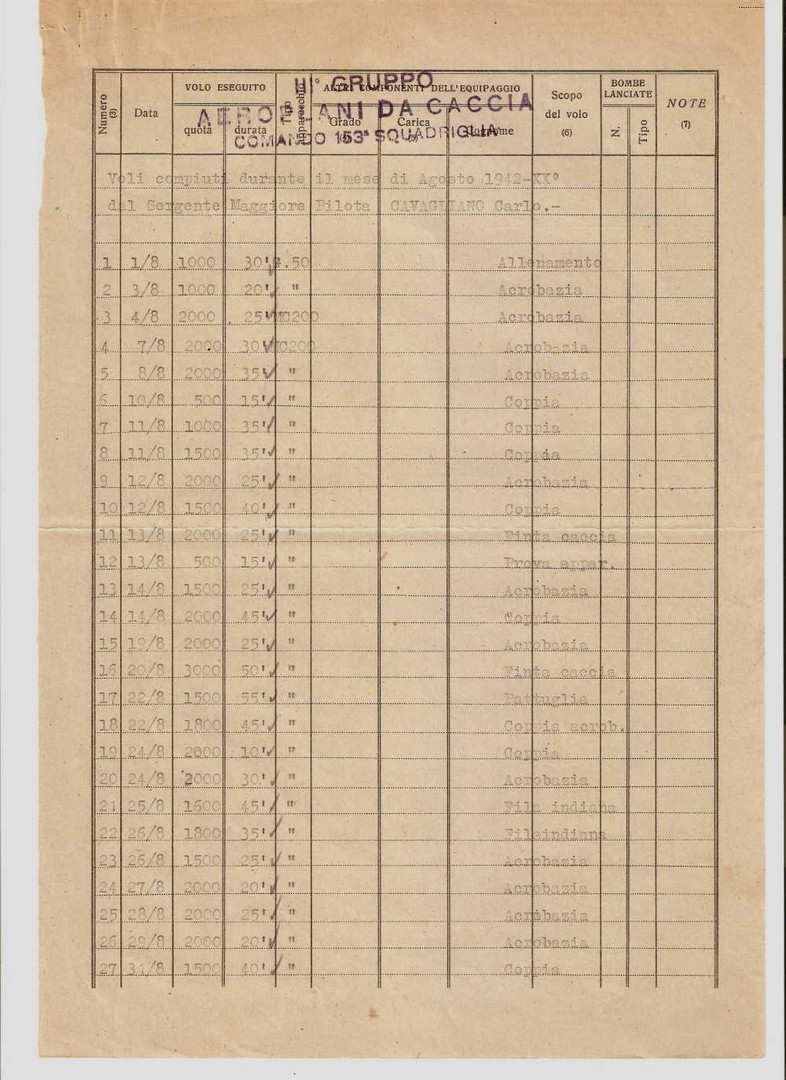 VOLO ESEGUITO ALTRI COMPONENTI DELL'EQUIPAGGIO BOMBE LANCIATE
Numero (3) Data quota durata Tipo Grado Carica Scopo del volo (6) N. Tipo NOTE (7)
° GRUPPO
AEROPLANI DA CACCIA
COMANDO 153ª SQUADRIGLIA
Voli compiuti durante il mese di Agosto 1942-XX°
dal Sergente Maggiore Pilota CAVAGLIANO Carlo.-
1 1/8 1000 30' .50 Allenamento
2 3/8 1000 20' " Acrobazia
3 4/8 2000 25' MC200 Acrobazia
4 7/8 2000 30' MC200 Acrobazia
5 8/8 2000 35' " Acrobazia
6 10/8 500 15' " Coppia
7 11/8 1000 35' " Coppia
8 11/8 1500 35' " Coppia
9 12/8 2000 25' " Acrobazia
10 12/8 1500 40' " Coppia
11 13/8 2000 25' " Finta caccia
12 13/8 500 15' " Prova appar.
13 14/8 1500 25' " Acrobazia
14 14/8 2000 45' " Coppia
15 19/8 2000 25' " Acrobazia
16 20/8 3000 50' " Finta caccia
17 22/8 1500 55' " Pattuglia
18 22/8 1800 45' " Coppia acrob.
19 24/8 2000 10' " Coppia
20 24/8 2000 30' " Acrobazia
21 25/8 1600 45' " Fila indiana
22 26/8 1800 35' " Filaindiana
23 26/8 1500 25' " Acrobazia
24 27/8 2000 20' " Acrobazia
25 28/8 2000 25' " Acrobazia
26 29/8 2000 20' " Acrobazia
27 31/8 1500 40' " Coppia